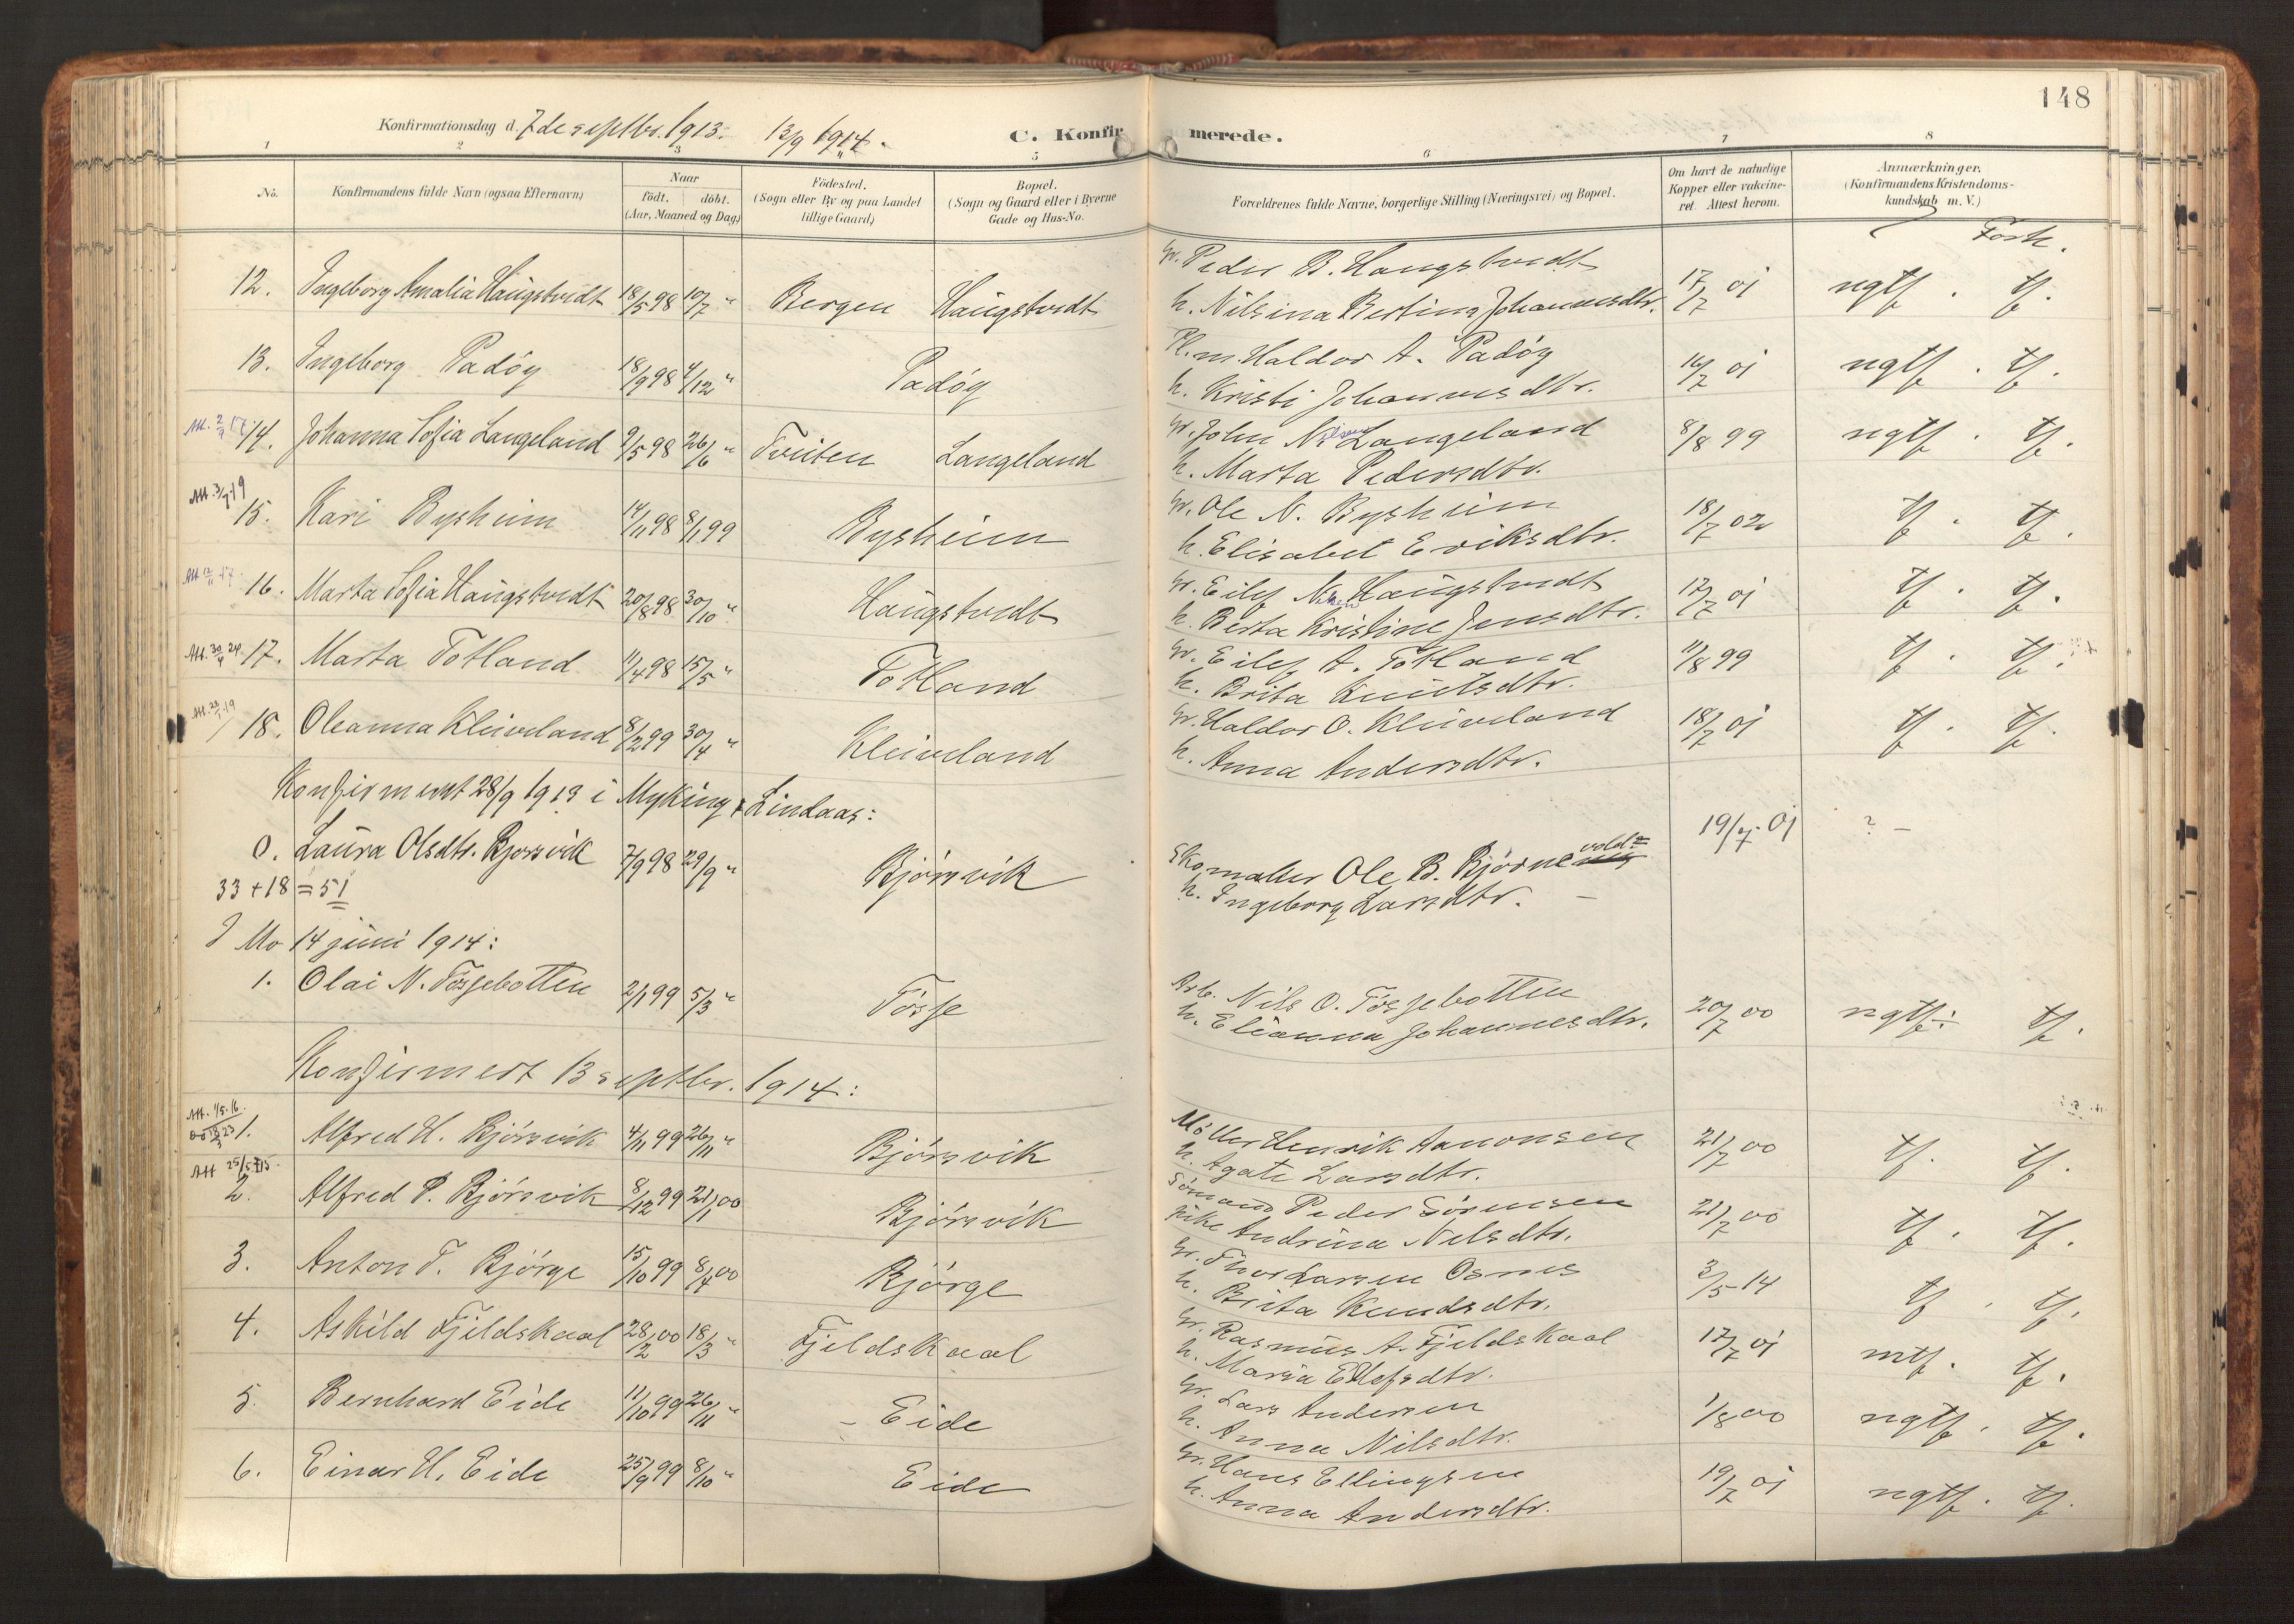 148
Konfirmationsdag d. 7de septbr. 1913. 13/9 1914.
C. Konfirmerede.
1 2 3 4 5 6 7 8
No. Konfirmandens fulde Navn (ogsaa Efternavn)
Naar
födt. döbt.
(Aar, Maaned og Dag)
Födested.
(Sogn eller By og paa Landet
tillige Gaard)
Bopæl.
(Sogn og Gaard eller i Byerne
Gade og Hus-No.
Forældrenes fulde Navne, borgerlige Stilling (Næringsvei) og Bopæl.
Om havt de naturlige
Kopper eller vakcine-
ret. Attest herom.
Anmærkninger.
(Konfirmandens Kristendoms-
kundskab m. V.)
12. Ingeborg Amalia Haugstvedt 18/5 98 10/7 " Bergen Haugstvedt Gr. Peder B. Haugstvedt
h. Nilsina Bertina Johannesdtr. 17/7 01 ngtf. tf.
13. Ingeborg Padøy 18/9 98 4/12 " Padøy Pl.m. Haldor A. Padøy
h. Kristi Johannesdtr. 16/7 01 ngtf. tf.
14. Johanna Sofia Langeland 9/5 98 26/6 " Tveiten Langeland Gr. John Nilsen Langeland
h. Marta Pedersdtr. 8/8 99 ngtf. tf.
Att. 3/9 19
15. Kari Bysheim 14/11 98 8/1 99 Bysheim Gr. Ole N. Bysheim
h. Elisabet Eriksdtr. 18/7 02 tf. tf.
16. Marta Sofia Haugstvedt 20/8 98 30/10 " Haugstvedt Gr. Eilef Haugstvedt
h. Berta Kristine Jensdtr. 17/7 01 tf. tf.
Att. 30/4 24
17. Marta Totland 11/4 98 15/5 " Totland Gr. Eilef A. Totland
h. Brita Knutsdtr. 11/8 99 tf. tf.
18. Oleanna Kleiveland 8/2 99 30/4 " Kleiveland Gr. Haldor O. Kleiveland
h. Anna Andersdtr. 18/7 01 tf. tf.
Konfirmert 28/9 1913 i Myking, Lindaas:
0. Laura Olsdtr. Bjørsvik 7/9 98 29/9 " Bjørsvik Skomaker Ole B. Bjørnevold
h. Ingeborg Larsdtr. 19/7 01 ? –
33 + 18 = 51
I Mo 14 juni 1914:
1. Olai N. Fossebotten 2/1 99 5/3 " Fosse Arb. Nils O. Fossebotten
h. Elianna Johannesdtr. 20/7 00 ngtf÷ tf.
Konfirmert 13 septbr. 1914:
Att. 1/5.16
1. Alfred H. Bjørsvik 4/11 99 26/11 " Bjørsvik Møller Henrik Aanonsen
h. Agate Larsdtr. 21/7 00 tf. tf.
Att 25/5
2. Alfred P. Bjørsvik 8/12 99 21/1 00 Bjørsvik Sømand Peder Sørensen
pike Andrina Nilsdtr. 21/7 00 tf. tf.
3. Anton T. Bjørge 15/10 99 8/4 00 Bjørge Gr. Thor Larsen Osnes
h. Brita Knudsdtr. 3/5 14 tf. tf.
4. Askild Fjeldskaal 28/2 00 18/3 " Fjeldskaal Gr. Rasmus A. Fjeldskaal
h. Maria Ellefsdtr. 17/7 01 mtf. tf.
5. Bernhard Eide 11/10 99 26/11 " Eide Gr. Lars Andersen
h. Anna Nilsdtr. 1/8 00 ngtf. tf.
6. Einar H. Eide 25/9 99 8/10 " Eide Gr. Hans Ellingsen
h. Anna Andersdtr. 19/7 01 ngtf. tf.